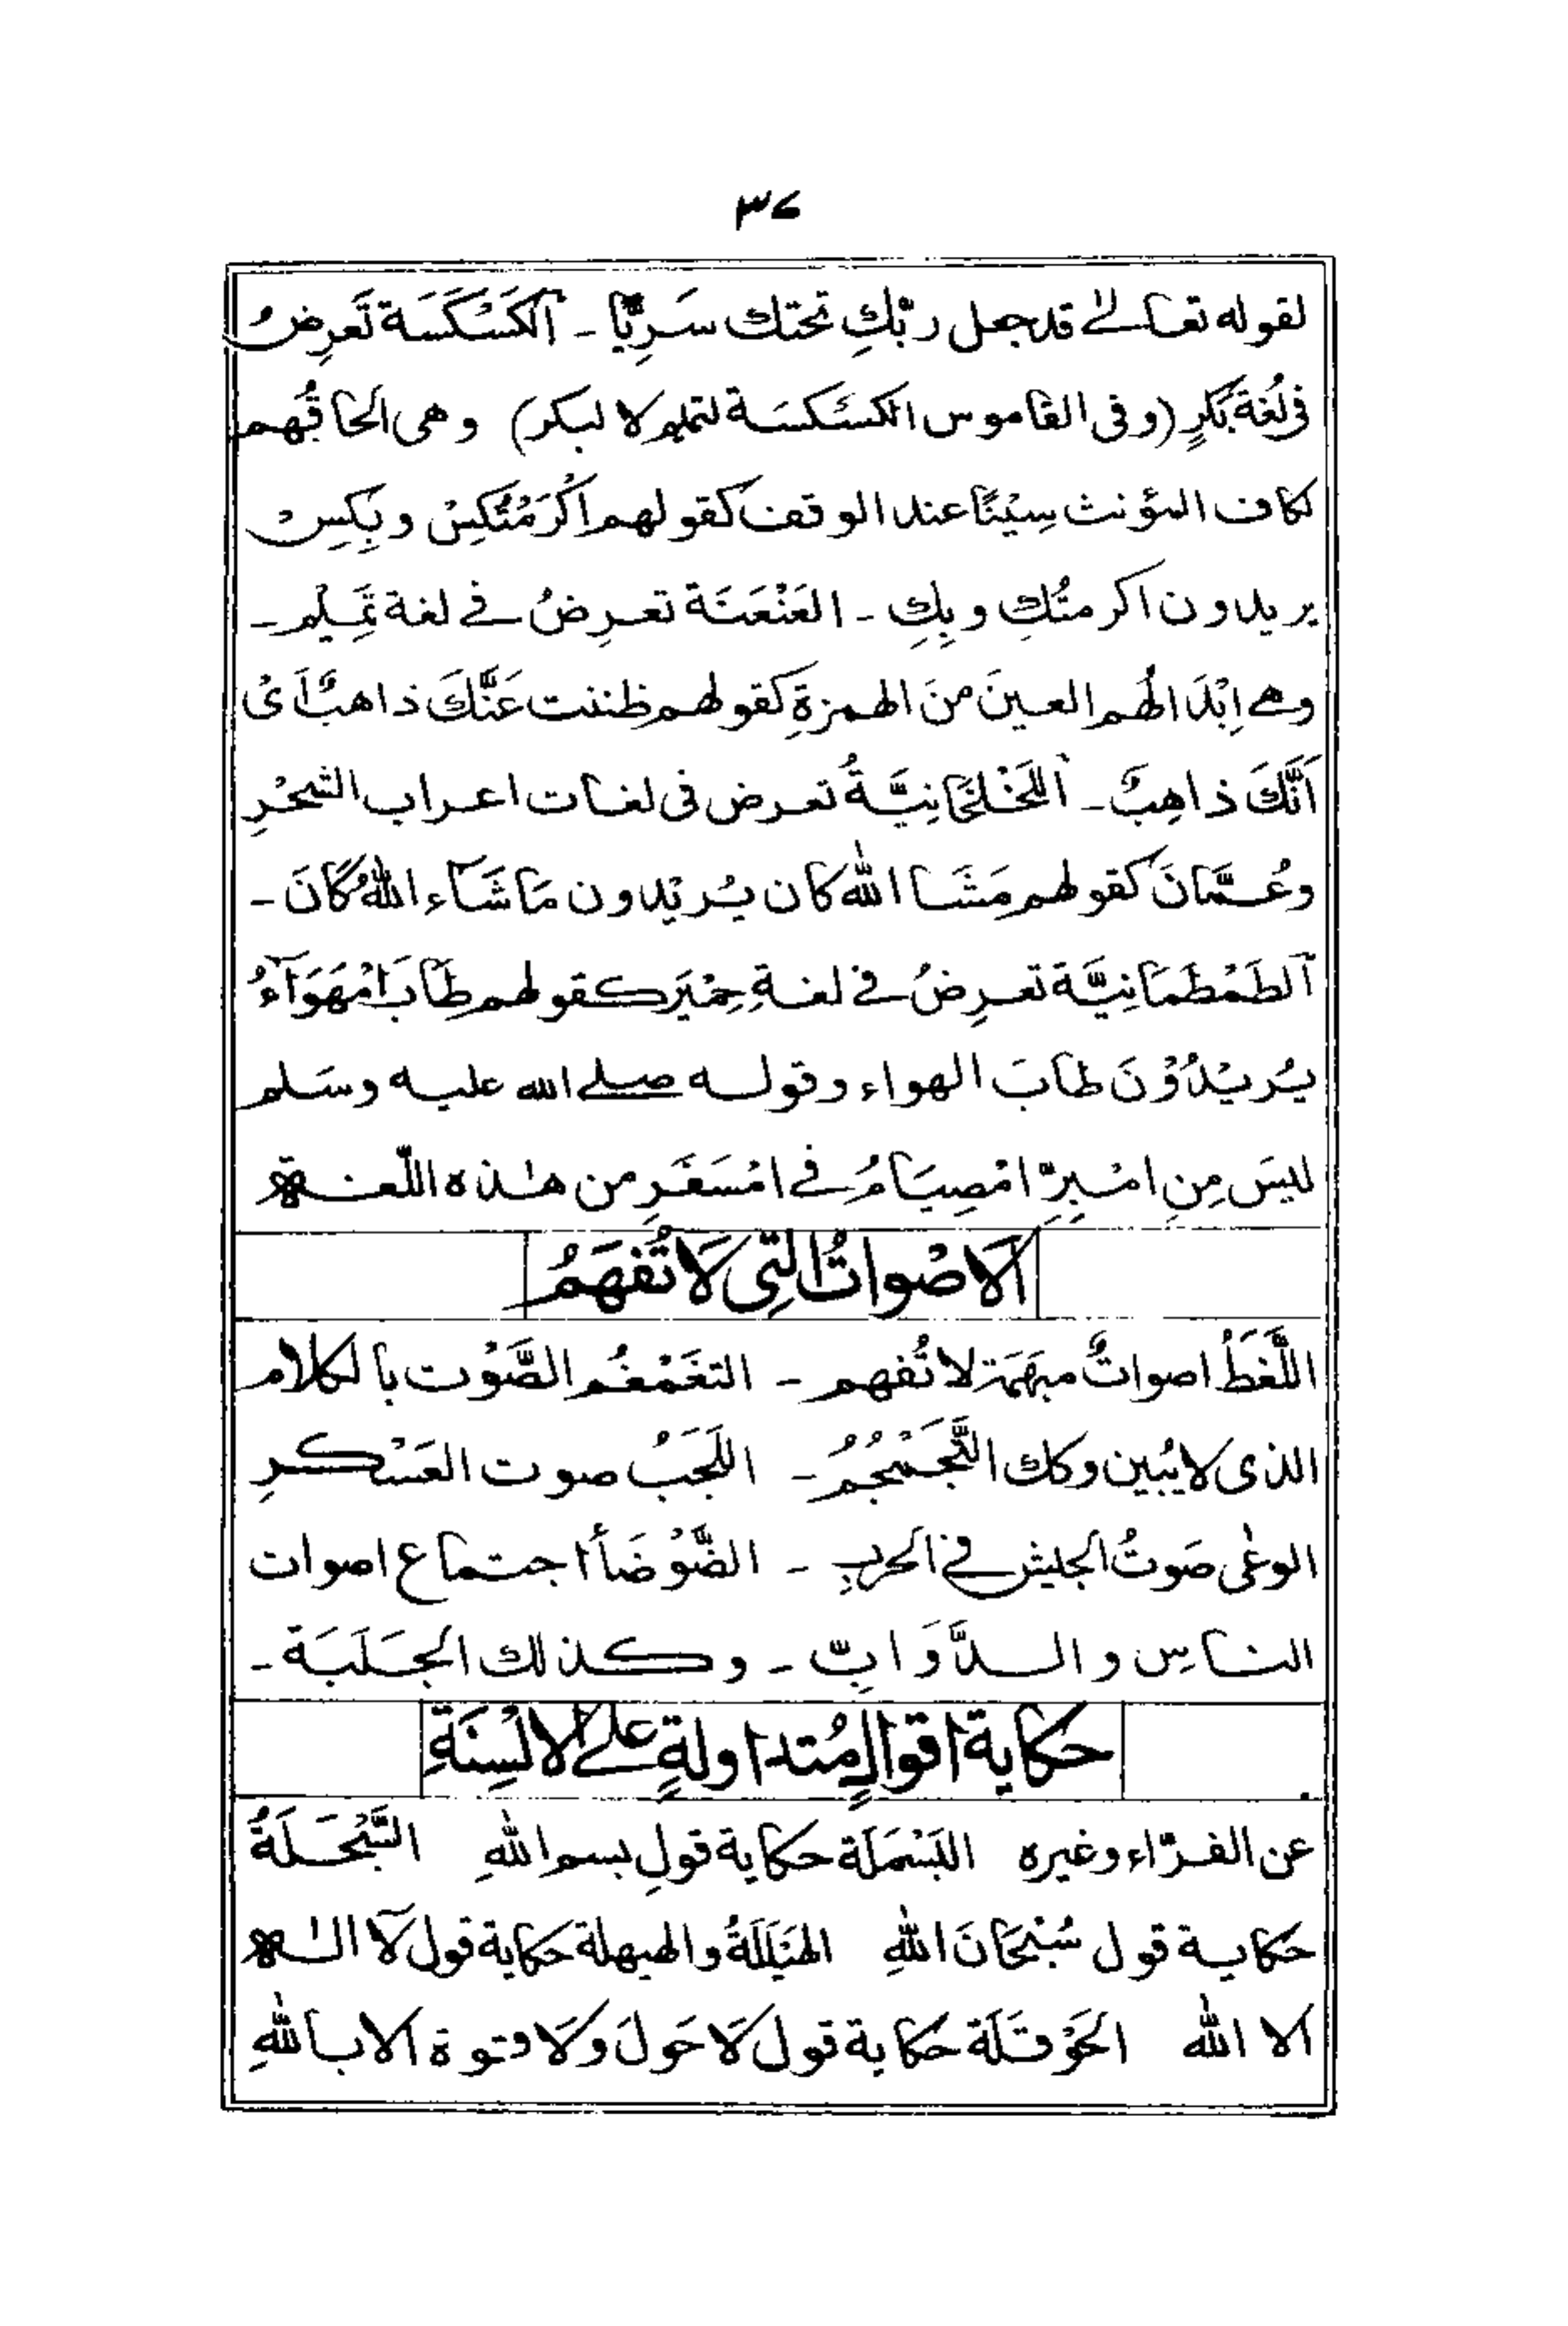 ٣٧
لقوله تعالے قد جعل ربّكِ تحتك سَرِيًّا ۔ اَلكَسْكَسَة تَعرِضُ
فی لُغة بَكرٍ (و فی القاموس الكسْكسَة لتميم لا لبكر) وهی الحاقُهم
لكاف المؤنث سِيْنًا عند الوقف كقولهم اَكْرَمْتُكِسْ وبِكِسْ
يريدون اكرمتُكِ وبِكِ ۔ العَنْعَنَة تعرِضُ فے لغة تَمِيْم ۔
وهے اِبْدَالُهم العينَ منَ الهمزةِ كقولهم ظننت عَنَّكَ ذاهبٌ اَیْ
اَنَّكَ ذاهِبٌ ۔ اَللَّخْلَخَانِيَّةُ تعرض فی لغات اعراب الشحْرِ
وعُمَّانَ كقولهم مَشَا اللّٰه كان يُريْدون مَا شَآء اللّٰهُ كَانَ ۔
اَلطَمْطَمَانِيَّة تعرِضُ فے لغةِ حِمْيَر كقولهم طَابَ امْهَوَآءُ
يُريْدُوْنَ طابَ الهواء وقوله صلے الله عليه وسَلم
ليسَ مِنِ امْبِرِّ امْصِيَامُ فے امْسَفَرِ من هٰذه اللّغة
اَلاصْواتُ الَّتِی لَا تُفهَمُ
اللَّغَطُ اصواتٌ مبهَمَة لا تُفهم ۔ التغَمْغُم الصَّوْت بالكلام
الذی لا يُبين وكك التَّجَمْجُمُ ۔ اللَجَبُ صوت العَسْكرِ
الوغٰی صَوتُ الجيش فے الحربِ ۔ الضَّوْضَأ اجتماع اصوات
الناسِ والدَّوَابّ ۔ وكذلك الجَلَبَة ۔
حكاية اقوالٍ مُتداولةٍ علے الالْسِنَةِ
عن الفرّاء وغيره البَسْمَلَة حكاية قولِ بسم اللّٰهِ السَّبْحَلَةُ
حكاية قول سُبْحَانَ اللّٰهِ الهَيْلَلَةُ والهيهلة حكاية قول لآ الٰه
الا اللّٰه الحَوْقَلَة حكاية قول لَا حَولَ ولَا قوة الا باللّٰهِ